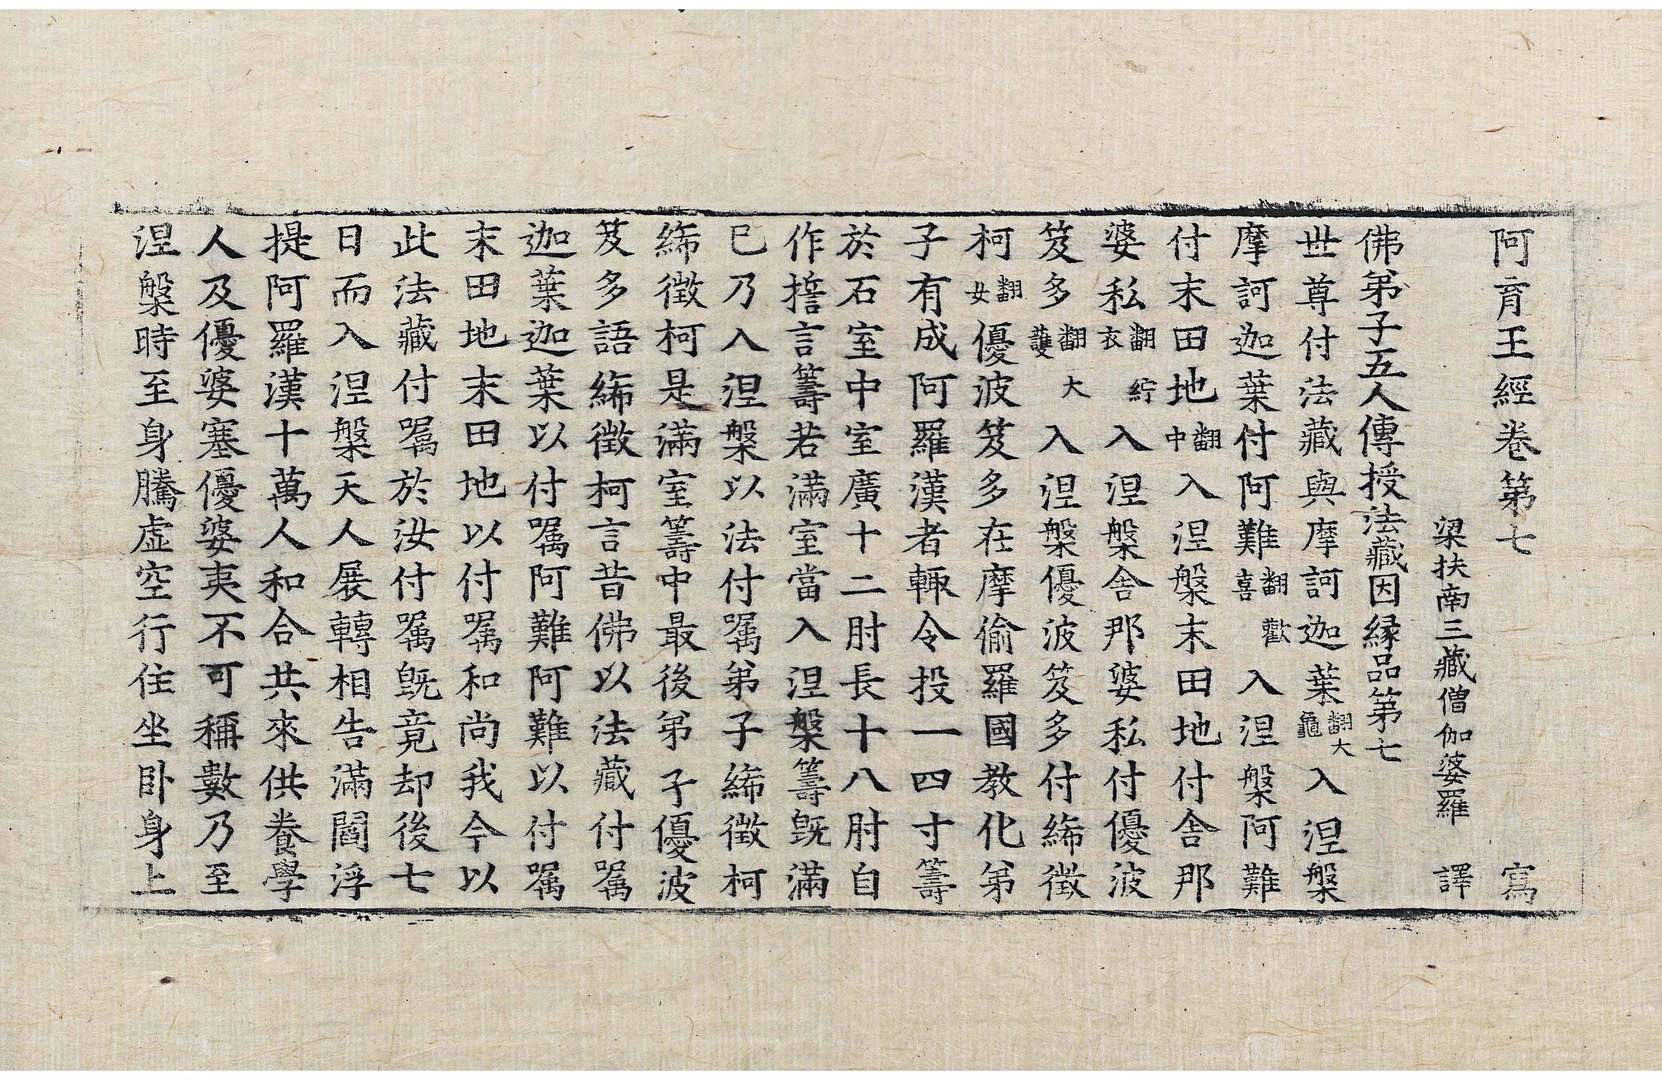 阿育王經卷第七　寫
梁扶南三藏僧伽婆羅　譯
佛弟子五人傳授法藏因緣品第七
世尊付法藏與摩訶迦葉翻大龜入涅槃
摩訶迦葉付阿難翻歡喜入涅槃阿難
付末田地翻中入涅槃末田地付舍那
婆私翻紵衣入涅槃舍那婆私付優波
笈多翻大護入涅槃優波笈多付絺徵
柯翻女優波笈多在摩偷羅國教化弟
子有成阿羅漢者輙令投一四寸籌
於石室中室廣十二肘長十八肘自
作誓言籌若滿室當入涅槃籌既滿
已乃入涅槃以法付囑弟子絺徵柯
絺徵柯是滿室籌中最後弟子優波
笈多語絺徵柯言昔佛以法藏付囑
迦葉迦葉以付囑阿難阿難以付囑
末田地末田地以付囑和尚我今以
此法藏付囑於汝付囑既竟却後七
日而入涅槃天人展轉相告滿閻浮
提阿羅漢十萬人和合共來供養學
人及優婆塞優婆夷不可稱數乃至
涅槃時至身騰虛空行住坐卧身上